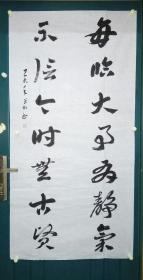 每临大事有静气
不信今时无古贤